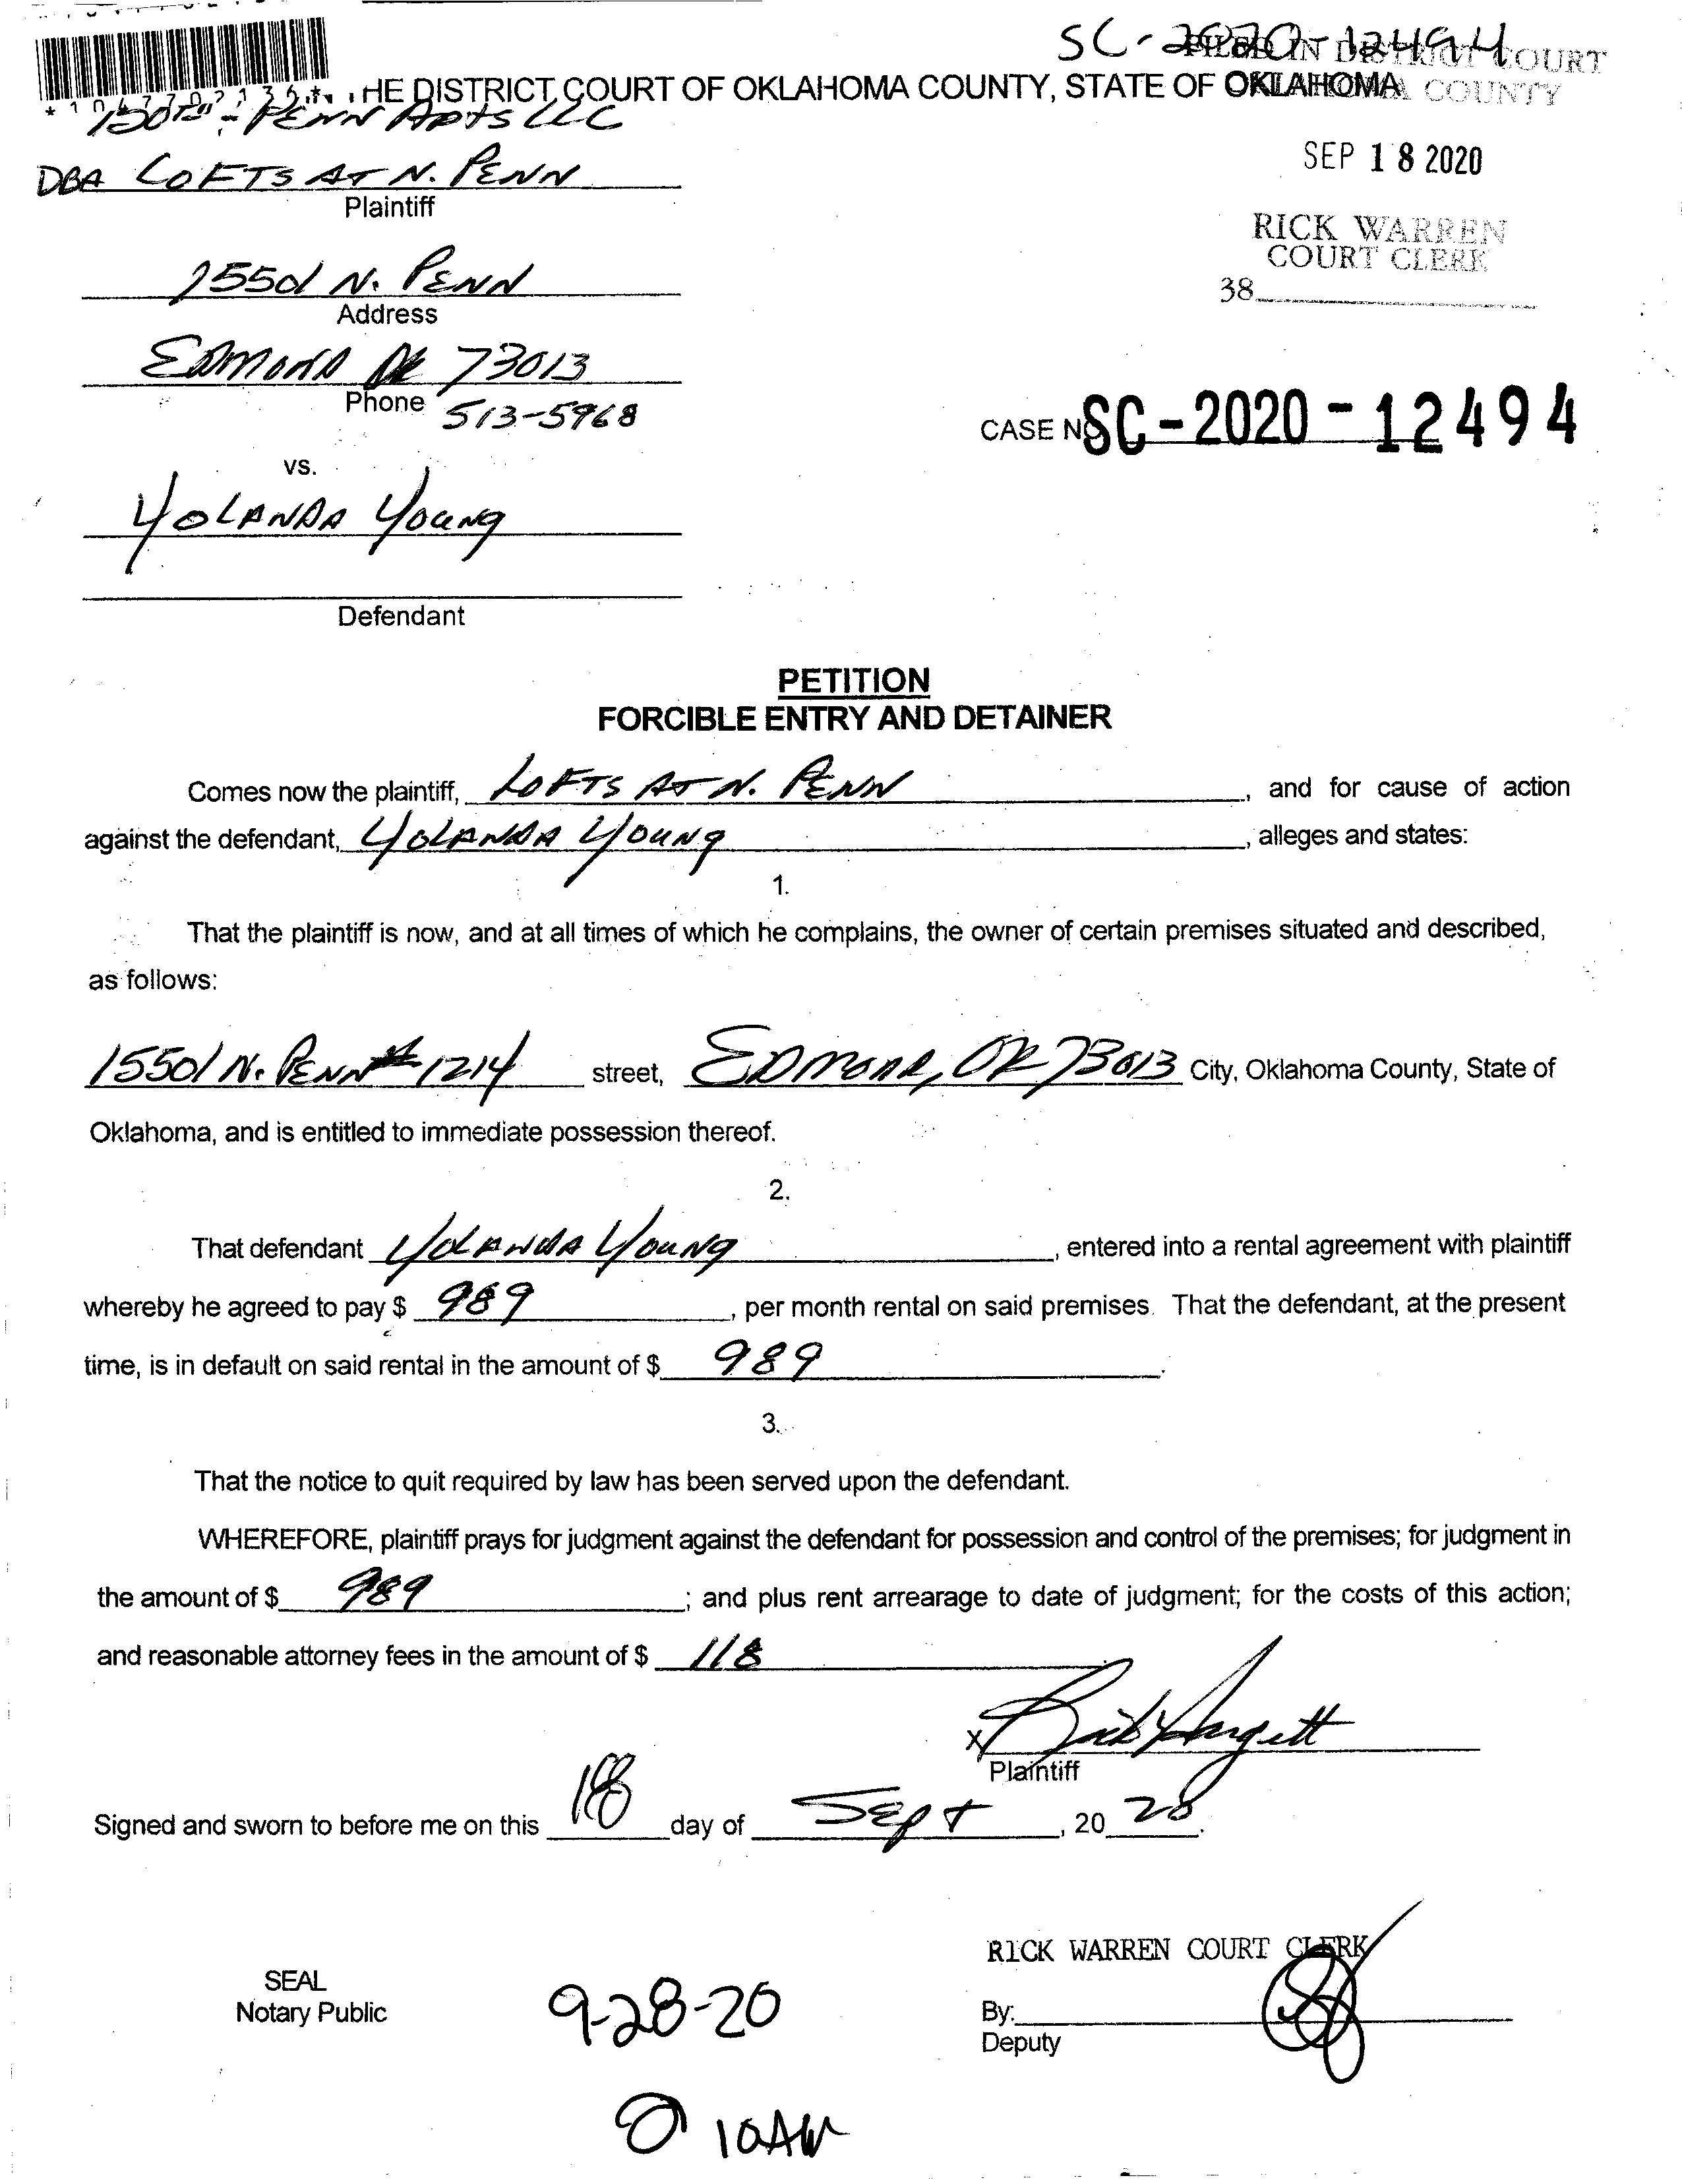 SC-2020-12494
FILED IN DISTRICT COURT
OKLAHOMA COUNTY
HE DISTRICT COURT OF OKLAHOMA COUNTY, STATE OF OKLAHOMA
PENN APTS LLC
SEP 18 2020
DBA LOFTS AT N. PENN
Plaintiff
RICK WARREN
COURT CLERK
38
15501 N. PENN
Address
EDMOND OK 73013
Phone 513-5968
CASE NO SC-2020-12494
vs.
YOLANDA YOUNG
Defendant
PETITION
FORCIBLE ENTRY AND DETAINER
Comes now the plaintiff, LOFTS AT N. PENN, and for cause of action
against the defendant, YOLANDA YOUNG, alleges and states:
1.
That the plaintiff is now, and at all times of which he complains, the owner of certain premises situated and described,
as follows:
15501 N. PENN #1214 street, EDMOND, OK 73013 City, Oklahoma County, State of
Oklahoma, and is entitled to immediate possession thereof.
2.
That defendant YOLANDA YOUNG, entered into a rental agreement with plaintiff
whereby he agreed to pay $ 989, per month rental on said premises. That the defendant, at the present
time, is in default on said rental in the amount of $ 989.
3.
That the notice to quit required by law has been served upon the defendant.
WHEREFORE, plaintiff prays for judgment against the defendant for possession and control of the premises; for judgment in
the amount of $ 989; and plus rent arrearage to date of judgment; for the costs of this action;
and reasonable attorney fees in the amount of $ 118
X
Plaintiff
Signed and sworn to before me on this 18 day of SEPT, 20 20.
RICK WARREN COURT CLERK
SEAL
Notary Public
9-28-20
By:
Deputy
@ 10AM